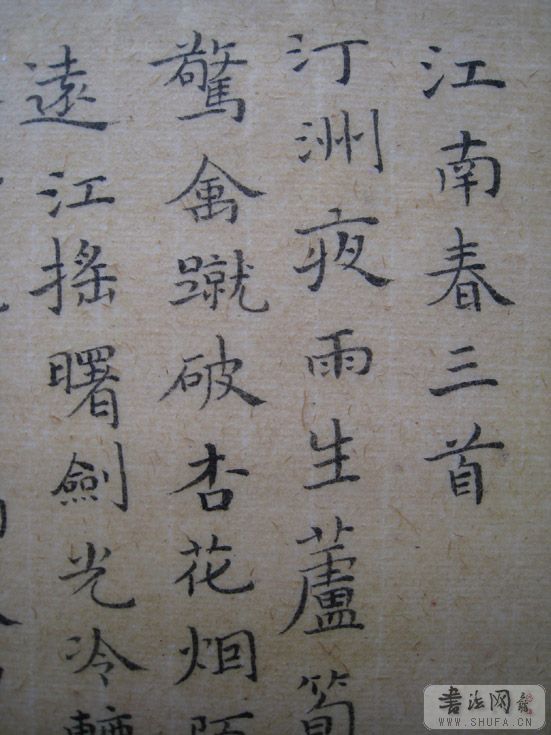 江南春三首
汀洲夜雨生蘆筍
驚禽蹴破杏花烟陌
遠江搖曙劍光冷
書法网
WWW.SHUFA.CN